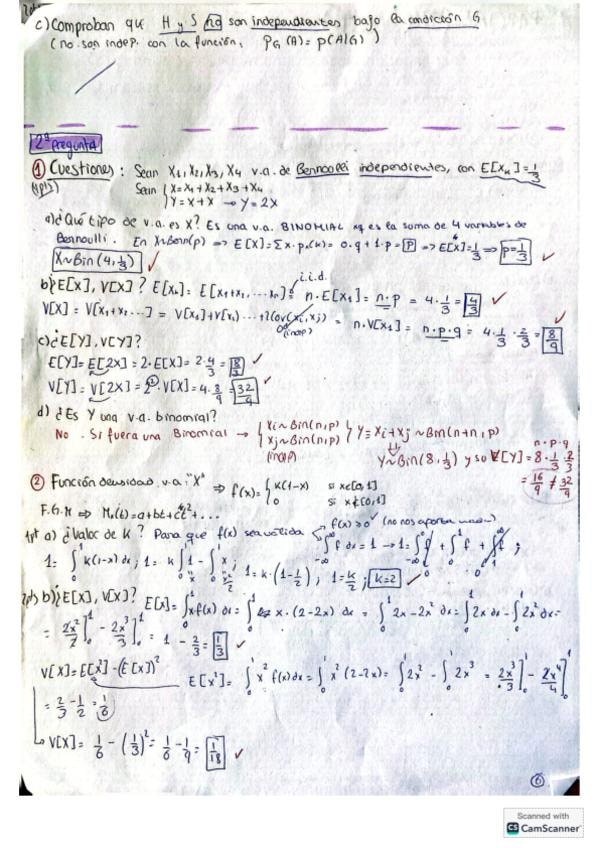 c) Comproban que H y S no son independientes bajo la condición G
(no son indep. con la función, PG(A) = P(A|G))
2ª pregunta
① Cuestiones: Sean X1, X2, X3, X4 v.a. de Bernoulli independientes, con E[X4] = 1/3
Sean { X = X1 + X2 + X3 + X4
Y = X + X → Y = 2X
a) ¿Qué tipo de v.a. es X? Es una v.a. BINOMIAL xq es la suma de 4 variables de
Bernoulli. En X~Bern(p) ⇒ E[X] = Σx·px(x) = 0·q + 1·p = p ⇒ E[X] = 1/3 ⇒ p = 1/3
X~Bin(4, 1/3) ✓
b) ¿E[X], V[X]? E[Xn] = E[X1 + X2 + ... Xn] = n·E[X1] = n·p = 4·1/3 = 4/3 ✓
i.i.d.
V[X] = V[X1 + X2 ...] = V[X1] + V[X2) ... + 2(Cov(Xi, Xj) = n·V[X1] = n·p·q = 4·1/3·2/3 = 8/9 ✓
0 (indep)
c) ¿E[Y], V[Y]?
E[Y] = E[2X] = 2·E[X] = 2·4/3 = 8/3 ✓
V[Y] = V[2X] = 2²·V[X] = 4·8/9 = 32/9 ✓
d) ¿Es Y una v.a. binomial?
No. Si fuera una Binomial → { Xi~Bin(n, p) } Y = Xi + Xj ~ Bin(n+n, p)
Xj~Bin(n, p)
(indp)
n·p·q
Y~Bin(8, 1/3) y su V[Y] = 8·1/3·2/3
= 16/9 ≠ 32/9
② Función densidad, v.a. "X" ⇒ f(x) = { K(1-x) si x∈[0,1]
0 si x∉[0,1]
F.G.M ⇒ Mx(t) = a + bt + ct² + ...
1pt a) ¿Valor de K? Para que f(x) sea válida f(x) ≥ 0 (no nos aporta nada)
∫f dx = 1 → 1 = ∫f + ∫f + ∫f;
1 = ∫K(1-x) dx; 1 = K∫1 - ∫x; 1 = K·(1 - 1/2); 1 = K/2; K = 2 ✓
b) ¿E[X], V[X]? E[X] = ∫x f(x) dx = ∫ x·(2-2x) dx = ∫2x - 2x² dx = ∫2x dx - ∫2x² dx =
= 2x²/2]₀¹ - 2x³/3]₀¹ = 1 - 2/3 = 1/3 ✓
V[X] = E[X²] - (E[X])² E[X²] = ∫x² f(x) dx = ∫x² (2-2x) = ∫2x² - ∫2x³ = 2x³/3]₀¹ - 2x⁴/4]₀¹
= 2/3 - 1/2 = 1/6
↳ V[X] = 1/6 - (1/3)² = 1/6 - 1/9 = 1/18 ✓
6
Scanned with
CS CamScanner